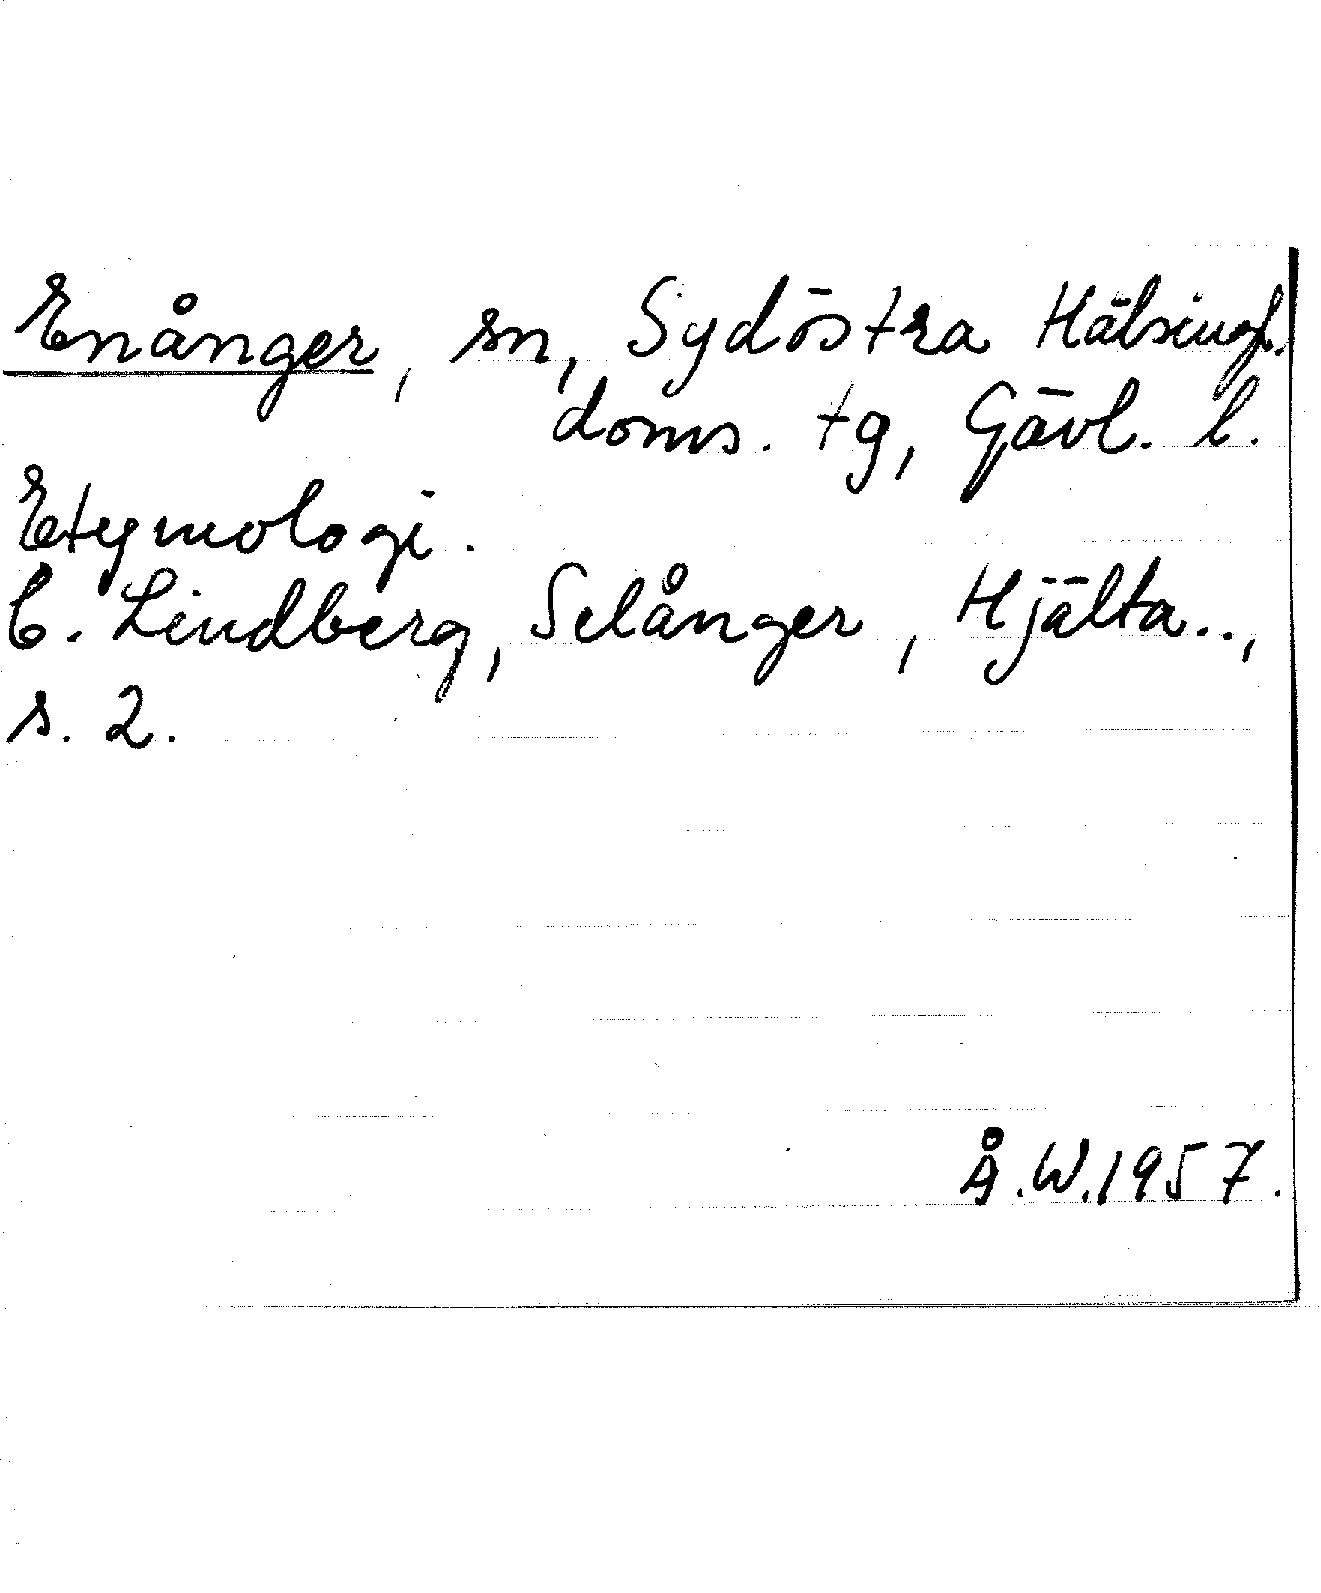 Enånger, sn, Sydöstra Hälsingl.
doms. tg, Gävl. l.
Etymologi.
C. Lindberg, Selånger, Hjälta..,
s. 2.
Å.W.1957.